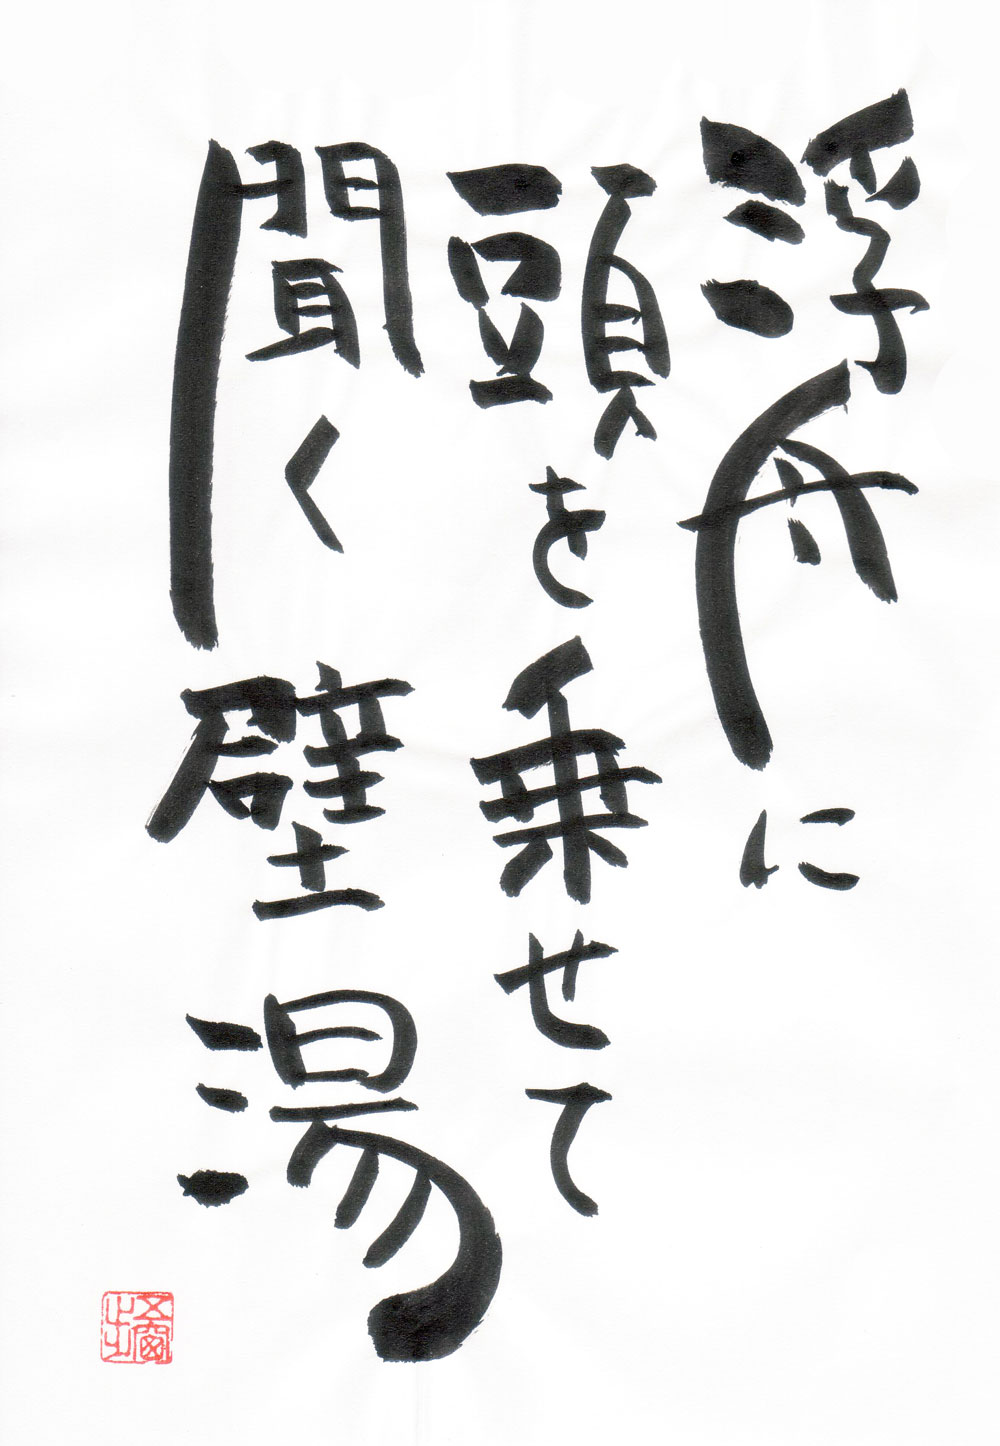 浮舟に
頭を乗せて
聞く壁湯